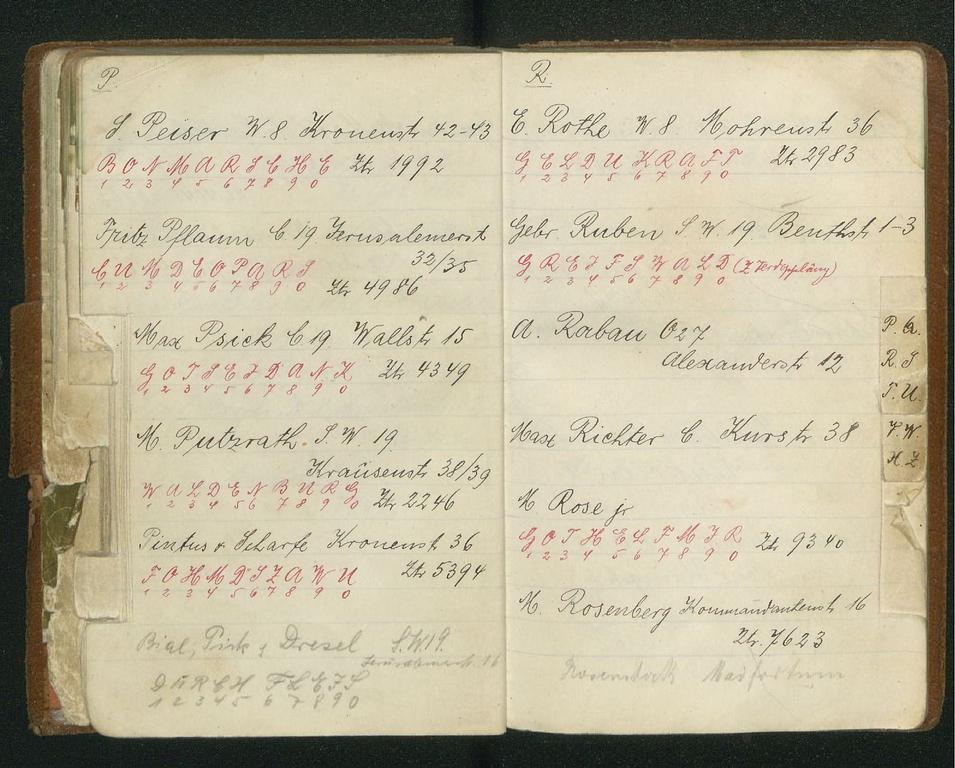 P.
S. Peiser W. 8. Kronenstr 42-43
B O N M A R S E H E Ztr 1992
1 2 3 4 5 6 7 8 9 0
Fritz Pflaum C. 19. Jerusalemerst
32/35
C U M D E O P A R S
1 2 3 4 5 6 7 8 9 0 Ztr 4986
Max Psick C 19 Wallstr 15
G O T S E J D A N K Ztr 4349
1 2 3 4 5 6 7 8 9 0
M. Putzrath. S. W. 19.
Krausenstr 38/39
W A L D E N B U R G Ztr 2246
1 2 3 4 5 6 7 8 9 0
Pintus & Scharfe Kronenst 36
F O H M D S Z A W U Ztr 5394
1 2 3 4 5 6 7 8 9 0
Bial, & Dresel S.W.19.
16
D U R C H F L E I S
1 2 3 4 5 6 7 8 9 0
R.
E. Rothe W. 8. Mohrenstr 36
G E L D U K R A F T Ztr 2983
1 2 3 4 5 6 7 8 9 0
Gebr. Ruben S. W. 19. Beuthstr 1-3
G R E I F S W A L D (Z Verdopplung)
1 2 3 4 5 6 7 8 9 0
A. Rabau O27
Alexanderstr 12
Max Richter C. Kurstr 38
M Rose jr
G O T H E L F M J R Ztr 9340
1 2 3 4 5 6 7 8 9 0
M. Rosenberg Kommandantenstr 16
Ztr. 7623
Rosenstock
P. Q.
R. S
T. U.
V. W.
X. Z